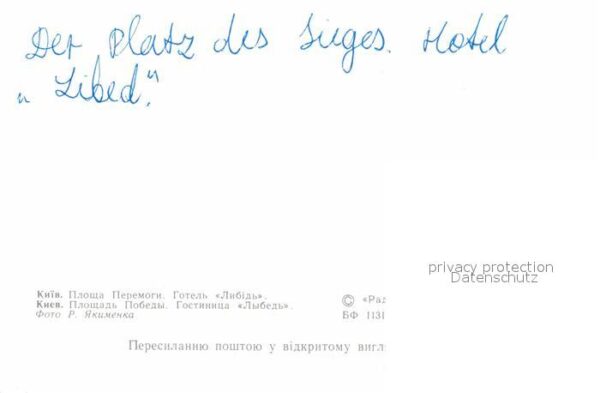 Der Platz des Sieges. Hotel
„Libed."
privacy protection
Datenschutz
Київ. Площа Перемоги. Готель «Либідь».
Киев. Площадь Победы. Гостиница «Лыбедь».
Фото Р. Якименка
© «Рад
БФ 1131
Пересиланню поштою у відкритому вигл